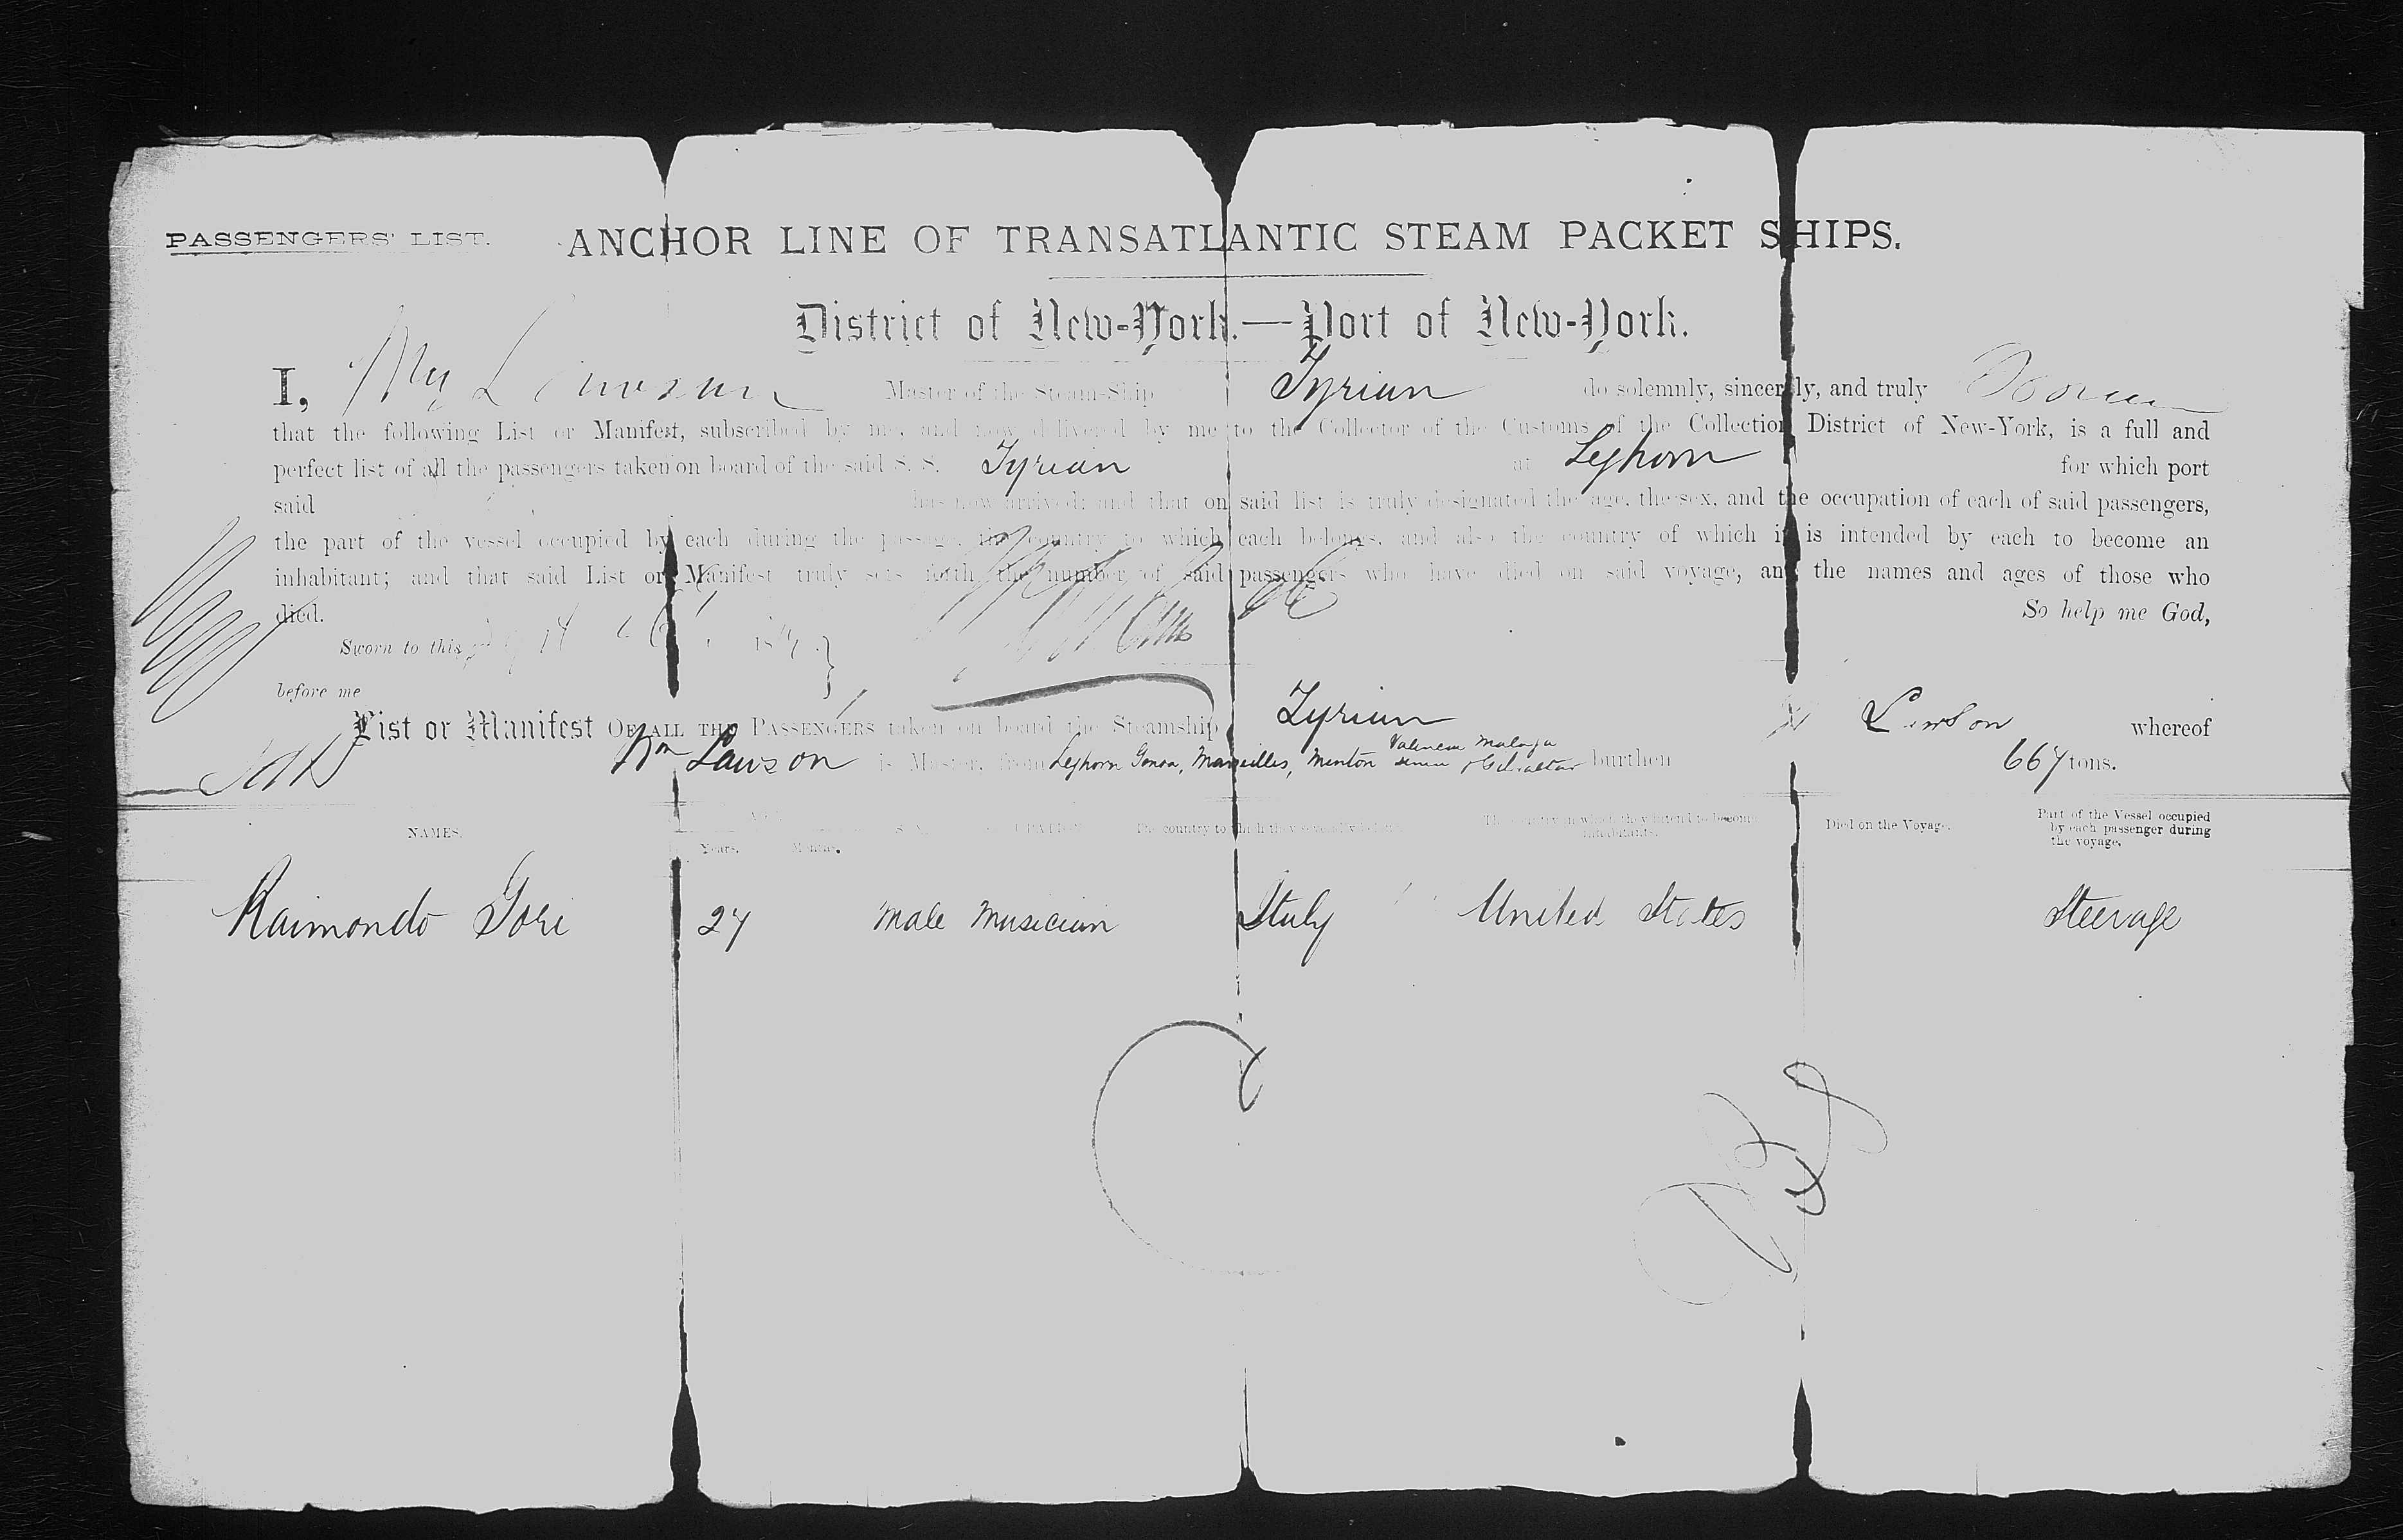 PASSENGERS' LIST. ANCHOR LINE OF TRANSATLANTIC STEAM PACKET SHIPS.
District of New-York.—Port of New-York.
I, Wm Lawson Master of the Steam-Ship Tyrian do solemnly, sincerely, and truly
that the following List or Manifest, subscribed by me, and now delivered by me to the Collector of the Customs of the Collection District of New-York, is a full and
perfect list of all the passengers taken on board of the said S. S. Tyrian at Leghorn for which port
said has now arrived; and that on said list is truly designated the age, the sex, and the occupation of each of said passengers,
the part of the vessel occupied by each during the passage, the country to which each belongs, and also the country of which it is intended by each to become an
inhabitant; and that said List or Manifest truly sets forth the number of said passengers who have died on said voyage, and the names and ages of those who
died. So help me God,
Sworn to this
before me
List or Manifest OF ALL THE PASSENGERS taken on board the Steamship Tyrian Lawson whereof
Wm Lawson is Master, from Leghorn Genoa, Marseilles, Menton Valencia Malaga & Gibraltar burthen 667 tons.
NAMES. AGE Years. Months. SEX OCCUPATION The country to which they severally belong. The country in which they intend to become inhabitants. Died on the Voyage. Part of the Vessel occupied by each passenger during the voyage.
Raimondo Gori 27 Male Musician Italy United States Steerage